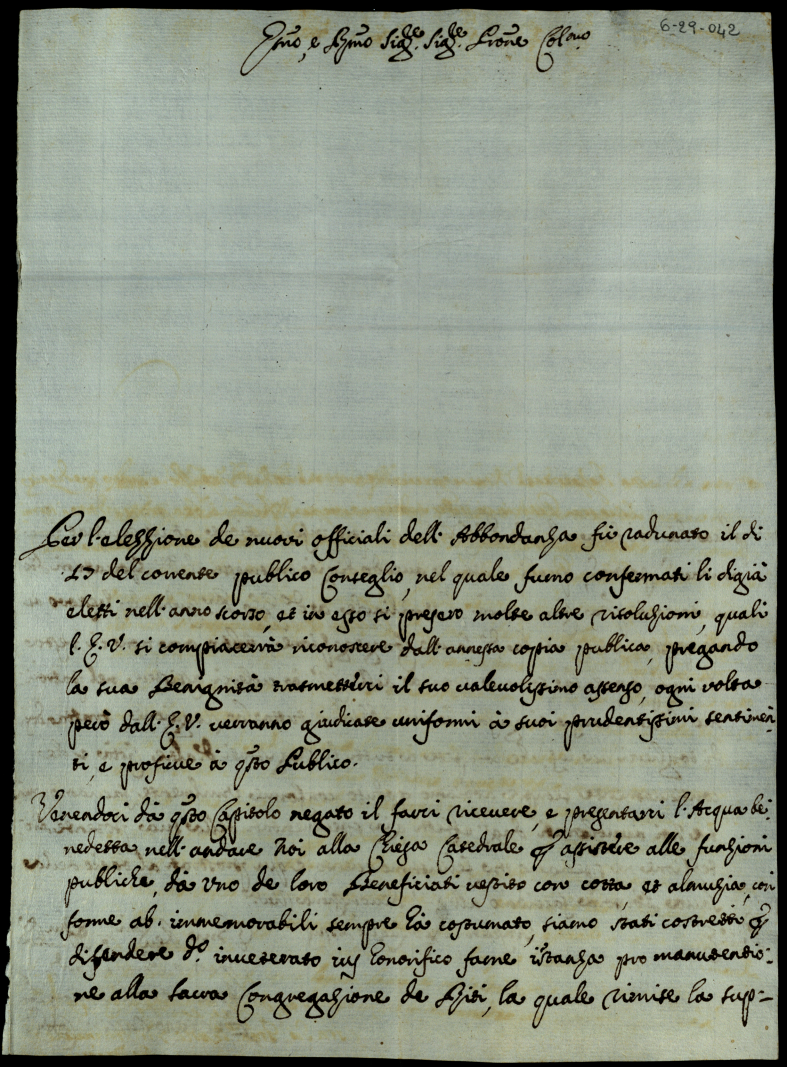 6-29-042
Emo, e Rmo Sigre. Sigre. Prone Colmo
Per l'elezzione de nuovi officiali dell'Abbondanza fù radunato il di
17 del corrente publico Conseglio, nel quale furno confermati li digià
eletti nell'anno scorso, et in esso si presero molte altre risoluzioni, quali
l'E. V. si compiacerà riconoscere dall'annessa copia publica, pregando
la sua Benignità trasmetterci il suo valevolissimo assenso, ogni volta
però dall'E. V. verranno giudicate uniformi à suoi prudentissimi sentimen-
ti, e proficue à qsto Publico.
Venendoci dà qsto Capitolo negato il farci ricevere, e presentarci l'Acqua be-
nedetta nell'andare Noi alla Chiesa Catedrale p assistere alle funzioni
publiche, dà uno de loro Beneficiati vestito con cotta, et almuzia, con
forme ab immemorabili sempre hà costumato, siamo stati costretti p
difendere do. inveterato ius honorifico farne istanza pro manutentio-
ne alla Sacra Congregazione de Riti, la quale rimise la sup=